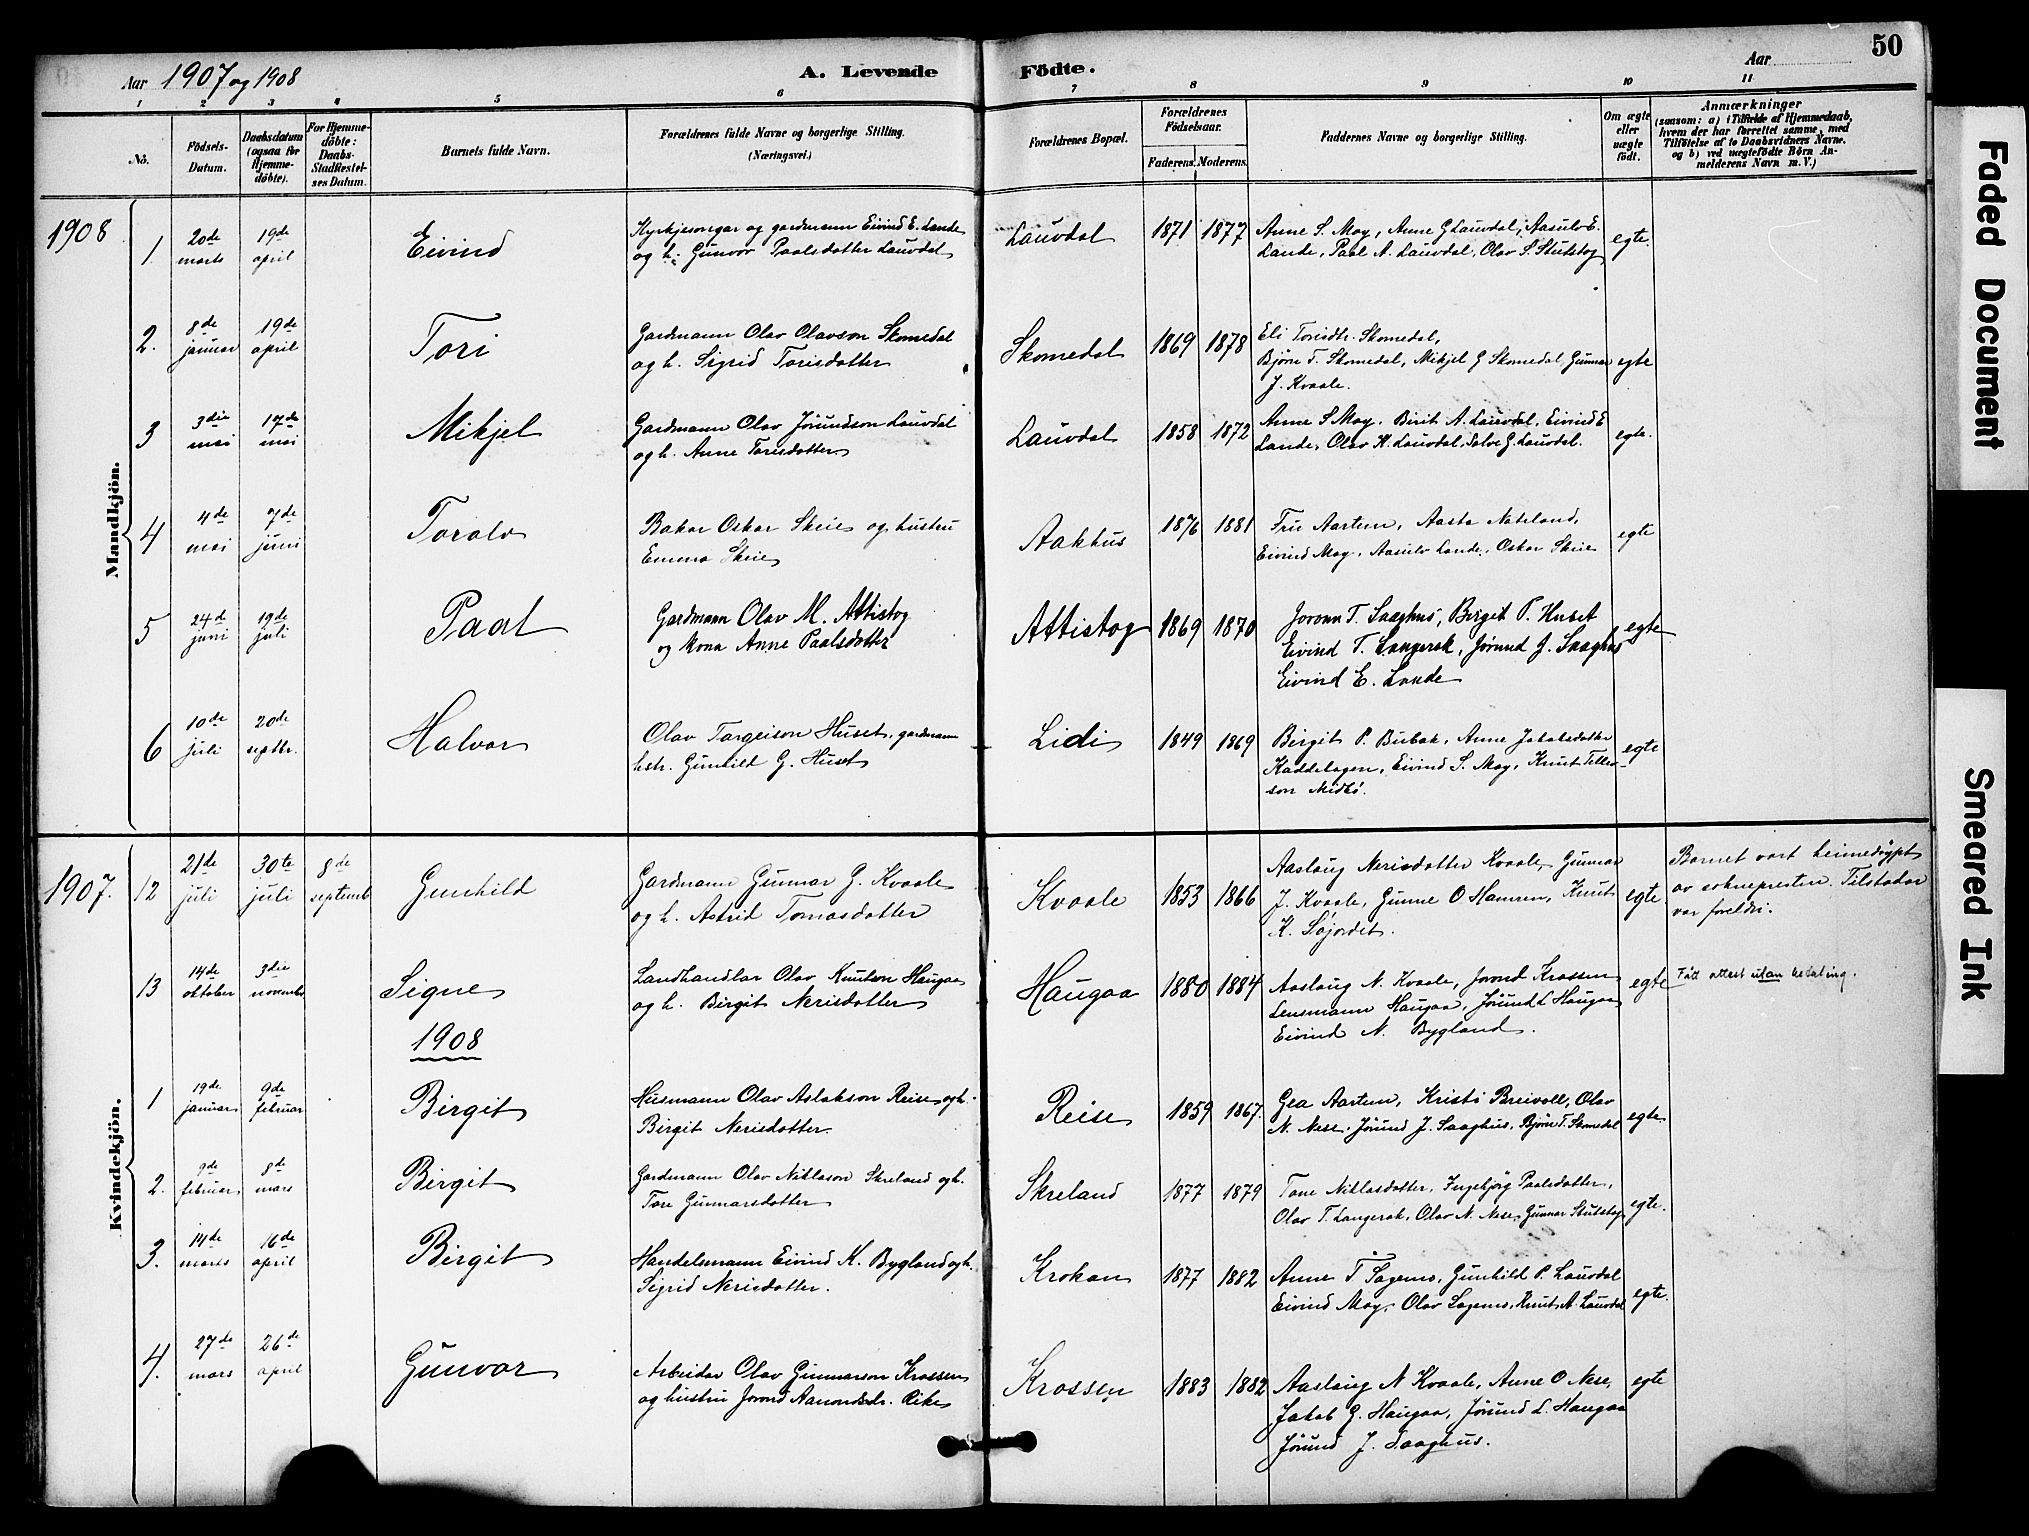 Aar 1907 og 1908
A. Levende Födte.
Aar
50
1 2 3 4 5 6 7 8 9 10 11
No.
Födsels-Datum.
Daabsdatum (ogsaa for Hjemme-döbte).
For Hjemme-döbte: Daabs-Stadfæstel-ses Datum.
Barnets fulde Navn.
Forældrenes fulde Navne og borgerlige Stilling. (Næringsvei.)
Forældrenes Bopæl.
Forældrenes Födselsaar.
Faderens. Moderens.
Faddernes Navne og borgerlige Stilling.
Om ægte eller uægte födt.
Anmærkninger
(saasom: a) i Tilfælde af Hjemmedaab, hvem der har forrettet samme, med Tilföielse af to Daabsvidners Navne. og b) ved uægtefödte Börn An-melderens Navn m. V.)
Mandkjön.
1908
1. 20de marts 19de april Eivind
Kyrkjesongar og gardmann Eivind E. Lande
og h. Gunvor Paalsdotter Lauvdal
Lauvdal 1871 1877
Anne S. Moy, Anne G Lauvdal, Aasulv E.
Lande, Paal A. Lauvdal, Olav S. Stutstog
egte.
2. 8de januar 19de april Tori
Gardmann Olav Olavson Skomedal
og h. Sigrid Torisdotter
Skomedal 1869 1878
Eli Torisdtr. Skomedal,
Bjørn T. Skomedal, Mikjel G Skomedal, Gunnar
J. Kvaale.
egte
3 3die mai 17de mai Mikjel
Gardmann Olav Jörundson Lauvdal
og h. Anne Torisdotter
Lauvdal 1858 1872
Anne S Moy. Birit A. Lauvdal, Eivind E
Lande, Olav K. Lauvdal, Salve G. Lauvdal.
egte.
4 4de mai 7de juni Toralv
Bakar Oskar Skeie og hustru
Emma Skeie
Aakhus 1876 1881
Fru Aartun, Aasta Nateland,
Eivind Moy, Aasulv Lande, Oskar Skeie
egte
5 24de juni 19de juli Paal
Gardmann Olav M. Attistog
og kona Anne Paalsdotter
Attistog 1869 1870
Joronn T. Saaghus, Birgit P. Huset
Eivind T. Langerak, Jørund J. Saaghus
Eivind E. Lande
egte
6 10de juli 20de septbr. Halvor
Olav Targeison Huset, gardmann
hstr. Gunhild G. Huset
Lidi 1849 1869
Birgit P. Bubak, Anne Jakobsdotter
Kaddelagen, Eivind S. Moy, Knut Tellev-
son Midbö.
egte
Kvindekjön.
1907.
12 21de juli 30te juli 8de septemb Gunhild
Gardmann Gunnar G. Kvaale
og h. Astrid Tomasdotter
Kvaale 1853 1866
Aaslaug Nerisdotter Kvaale, Gunnar
J. Kvaale, Gunne O Hamren, Knut
K. Søjordet.
egte
Barnet vart heimedøypt
av soknepresten. Tilstadar
var foreldri.
13 14de oktober 3die november Signe
Landhandlar Olav Knutson Haugaa
og h. Birgit Nerisdotter
Haugaa 1880 1884
Aaslaug N. Kvaale, Jorond Krossen
Lensmann Haugaa, Jörund L Haugaa
Eivind N. Bygland.
egte
Fått attest utan betaling.
1908
1 19de januar 9de februar Birgit
Husmann Olav Aslakson Reise og h.
Birgit Nerisdotter
Reise 1859 1867.
Gea Aartun, Kristi Breivoll, Olav
N. Nese, Jörund J. Saaghus, Bjørn T. Skomedal
egte
2. 9de februar 8de mars Birgit
Gardmann Olav Niklason Skreland og h.
Tore Gunnarsdotter
Skreland 1877 1879
Tone Niklasdotter, Ingebjörg Paalsdotter,
Olav T. Langerak, Olav N. Nese, Gunnar Stutstog
egte.
3. 14de marts 16de april Birgit
Handelsmann Eivind K. Bygland og h.
Sigrid Nerisdotter.
Krokan 1877 1882
Anne T Sagenes, Gunhild P. Lauvdal
Eivind Moy, Olav Sagenes, Knut A. Lauvdal
egte.
4. 27de mars 26de april Gunvor
Arbeidar Olav Gunnarson Krossen
og hustru Jorond Aanondsdtr. Rike
Krossen 1883 1882
Aaslaug N Kvaale, Anne O Nese,
Jakob G. Haugaa, Jörund L. Haugaa
Jörund J. Saaghus.
egte
Faded Document
Smeared Ink